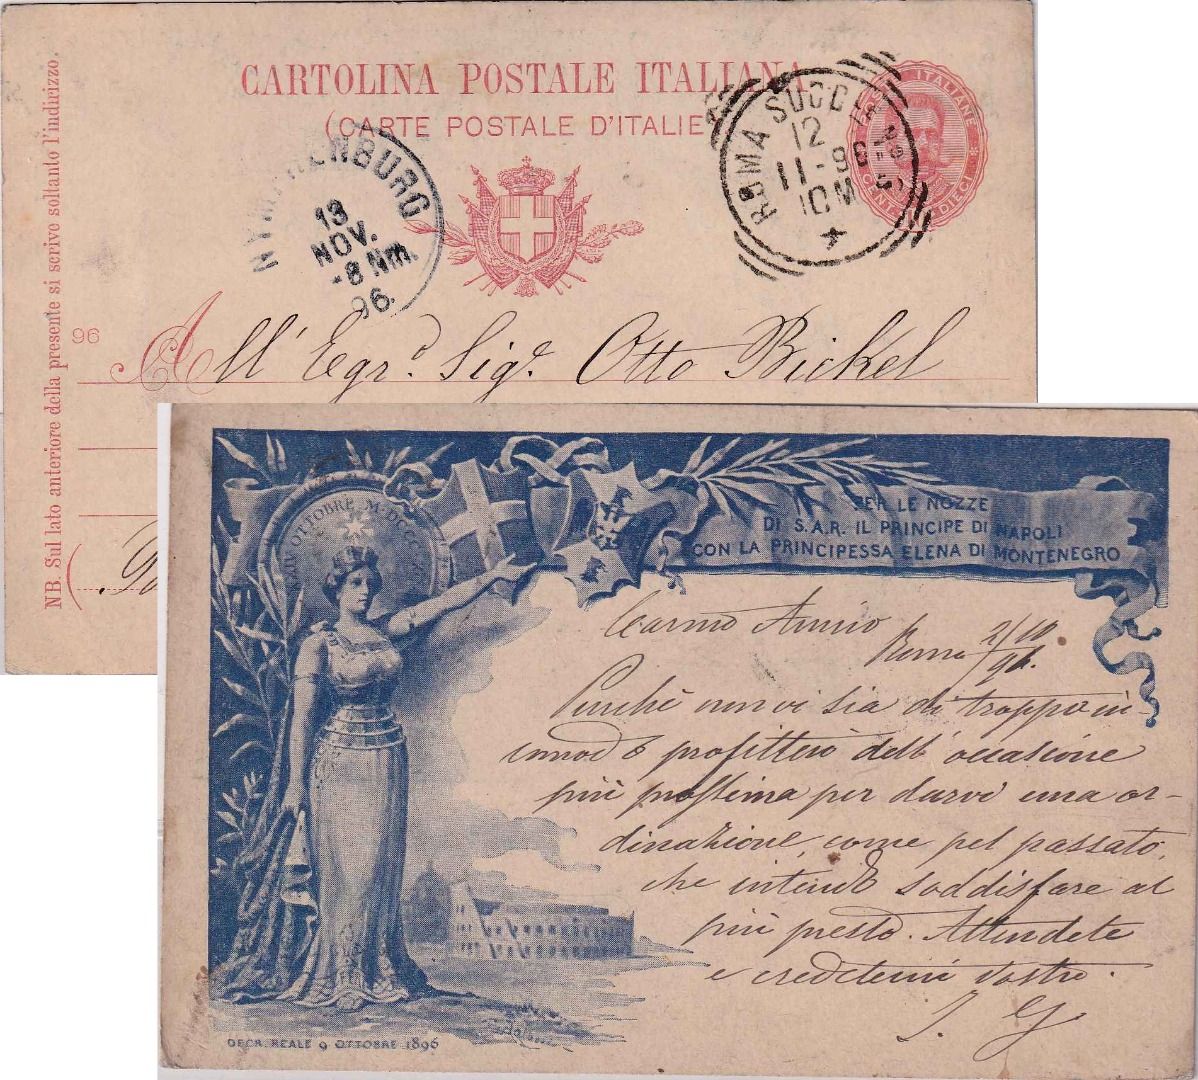 CARTOLINA POSTALE ITALIANA
(CARTE POSTALE D'ITALIE
ROMA SUCC
12
11-96
10M
POSTE ITALIANE
CENT DIECI
NYMPHENBURG
13
NOV.
-8 Nm.
96.
NB. Sul lato anteriore della presente si scrive soltanto l'indirizzo.
96
All' Egr.o Sig.e Otto Bickel
XXIV OTTOBRE M·DCCC
PER LE NOZZE
DI S.A.R. IL PRINCIPE DI NAPOLI
CON LA PRINCIPESSA ELENA DI MONTENEGRO
Carmo Amico
Roma 2/10
96.
Purché non vi sia di troppo in
profitterò dell' occasione
più prossima per darvi una or-
dinazione, come pel passato,
che intendo soddisfare al
più presto. Attendete
e credetemi vostro.
J. G
DECR. REALE 9 OTTOBRE 1896